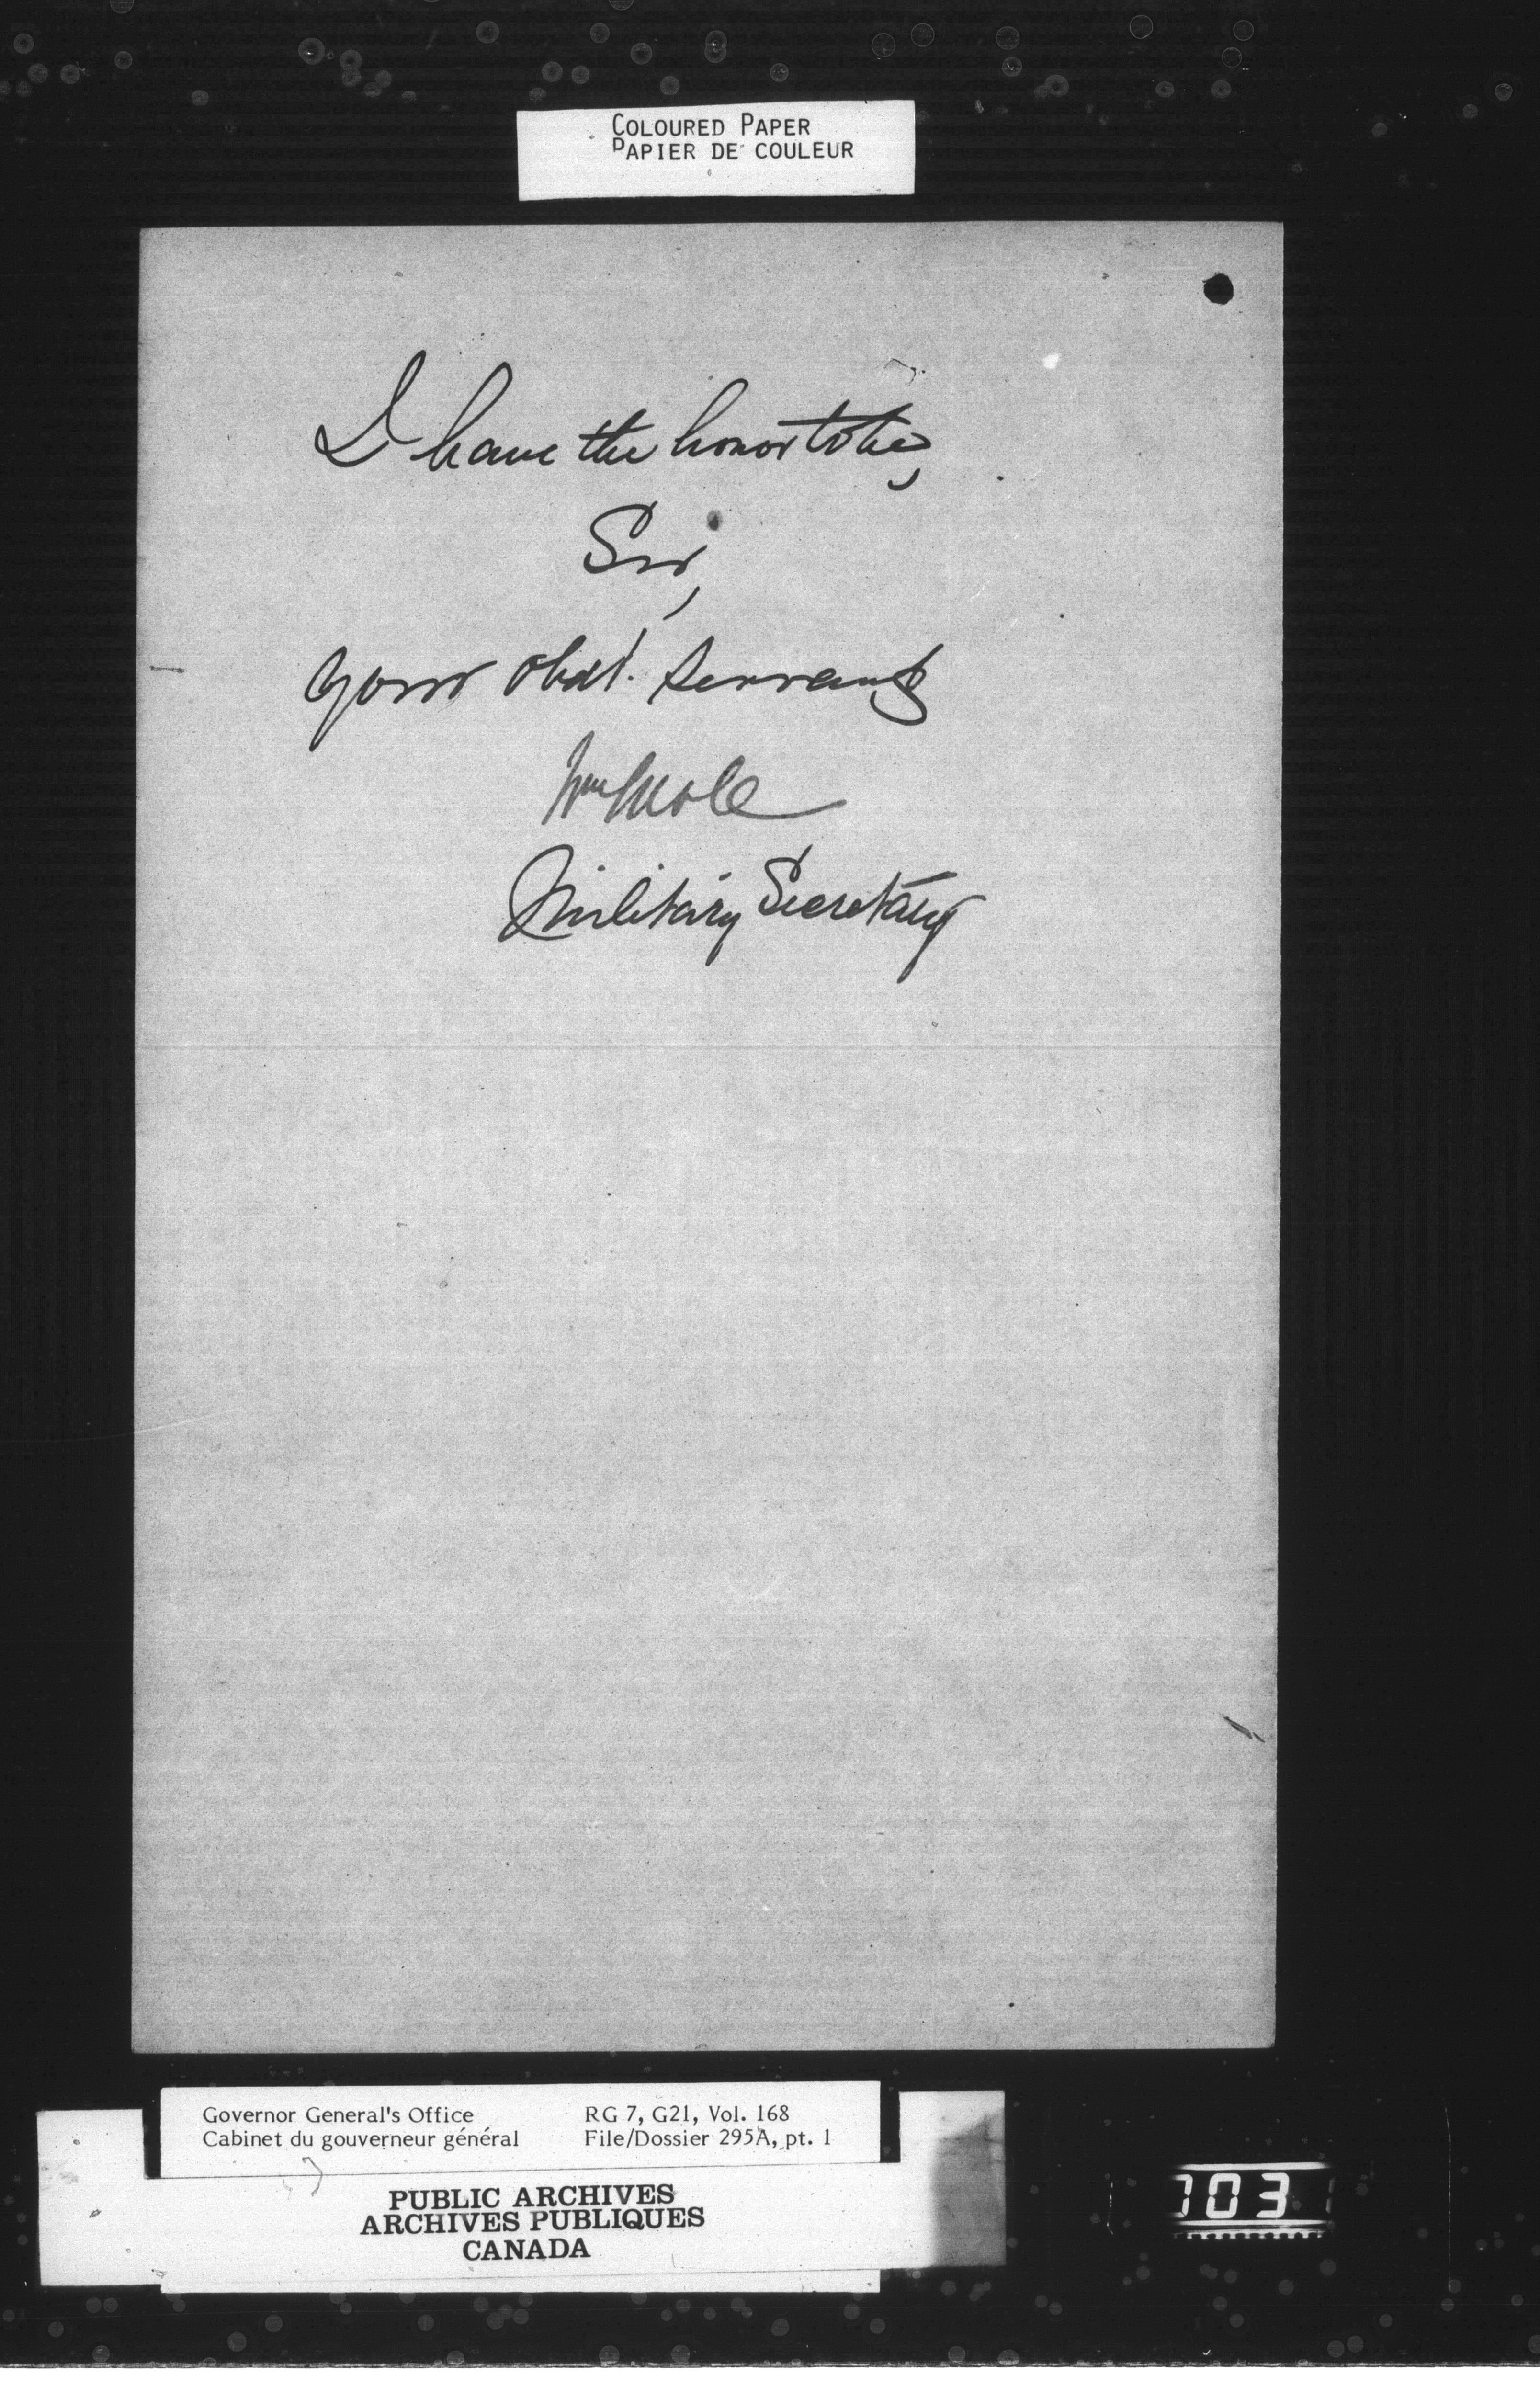 COLOURED PAPER
PAPIER DE COULEUR
I have the honor to be,
Sir,
your obdt. servant
Wm
Military Secretary
Governor General's Office RG 7, G21, Vol. 168
Cabinet du gouverneur général File/Dossier 295A, pt. 1
PUBLIC ARCHIVES
ARCHIVES PUBLIQUES
CANADA
103